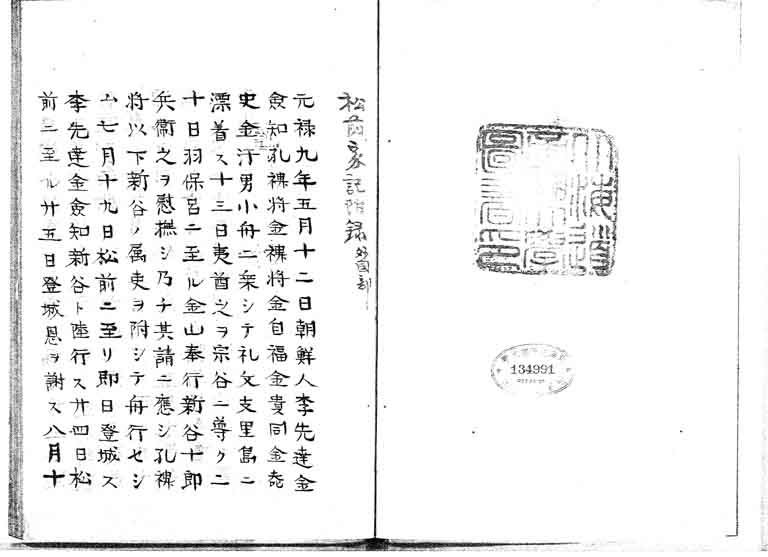 松前家記附録 外国部
元禄九年五月十二日朝鮮人李先達金
僉知孔裨将金裨将金自福金貴同金
史金汗男小舟ニ乗シテ礼文支里島ニ
漂着ス十三日夷酋之ヲ宗谷ニ導ク二
十日羽保呂ニ至ル金山奉行新谷十郎
兵衛之ヲ慰撫シ乃チ其請ニ應シ孔裨
将以下新谷ノ属吏ヲ附シテ舟行セシ
ム七月十九日松前ニ至リ即日登城ス
李先達金僉知新谷ト陸行ス廿四日松
前ニ至ル廿五日登城恩ヲ謝ス八月十
134991